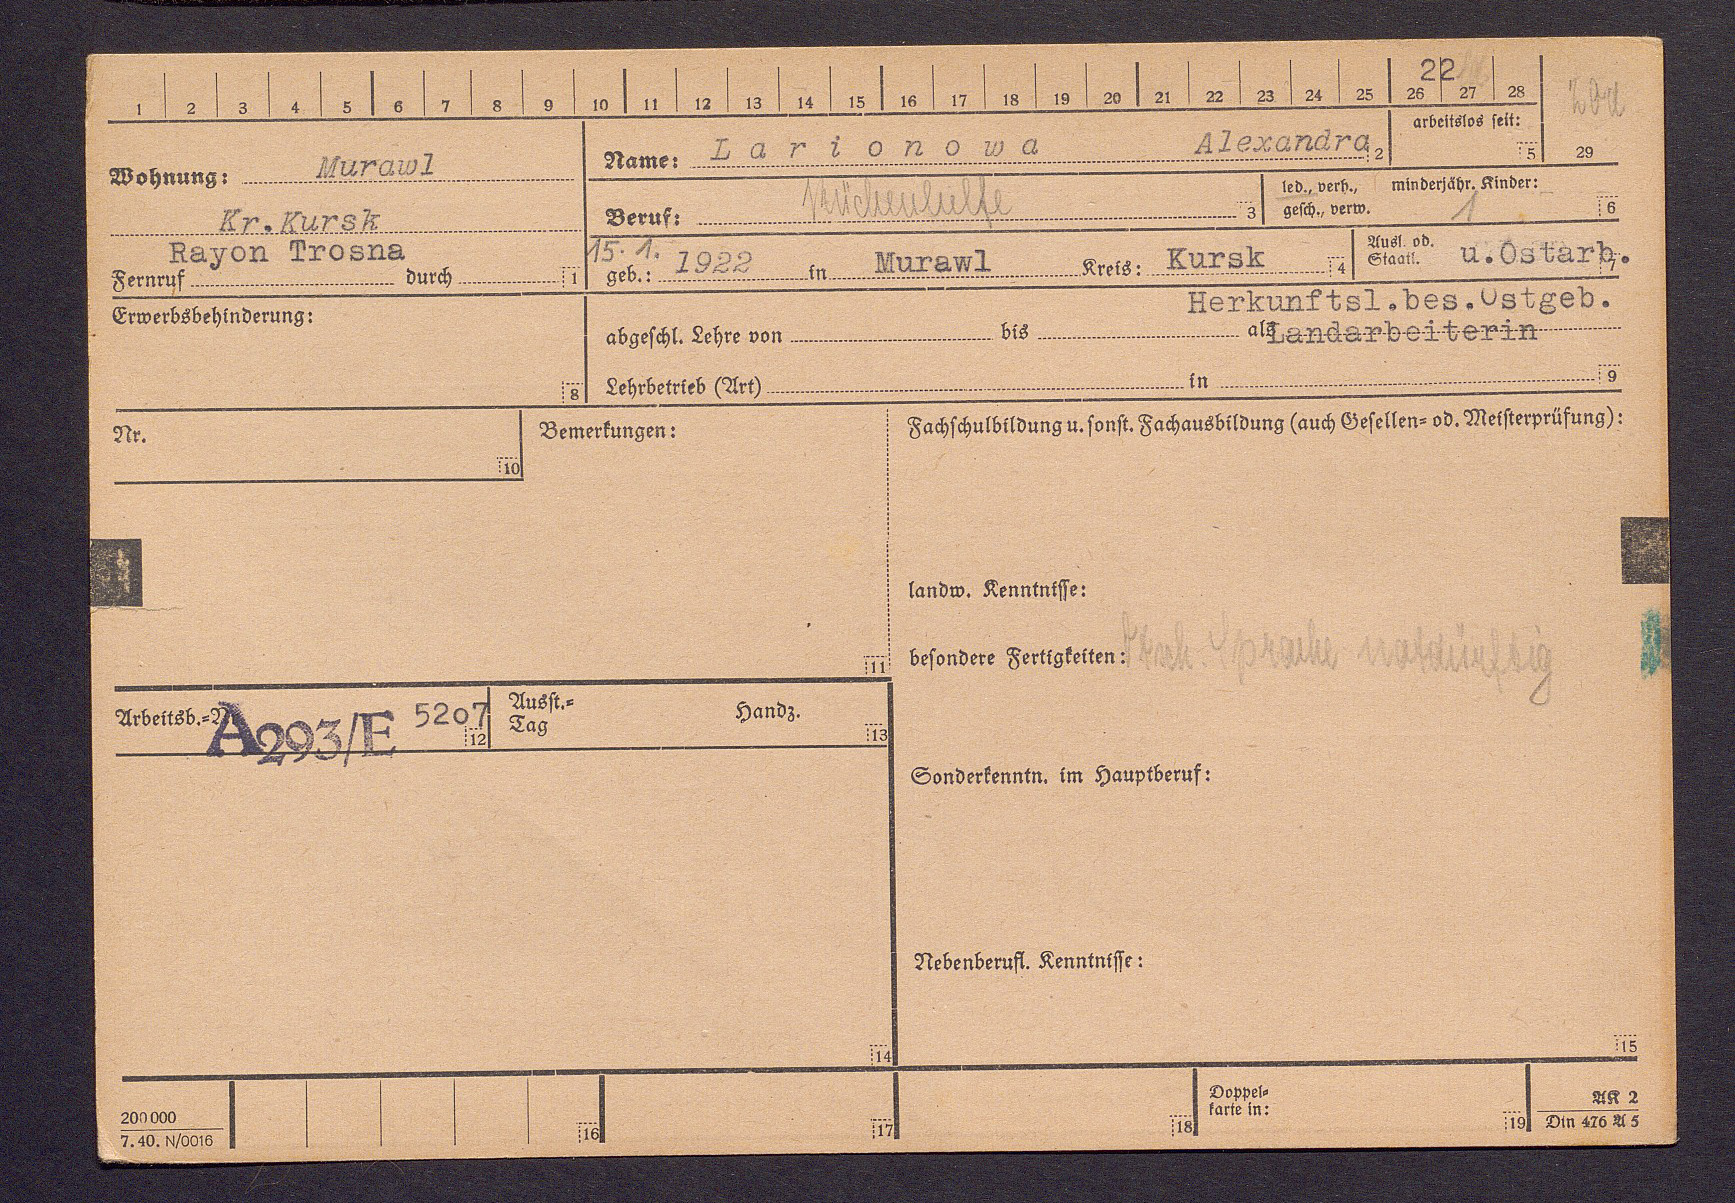 1 2 3 4 5 6 7 8 9 10 11 12 13 14 15 16 17 18 19 20 21 22 23 24 25 26 27 28
22
29
arbeitslos seit: 5
Wohnung: Murawl
Kr.Kursk
Rayon Trosna
Fernruf durch 1
Name: Larionowa Alexandra 2
Beruf: Küchenhilfe 3
led., verh., gesch., verw.
minderjähr. Kinder: 1 6
15.1.
geb.: 1922 in Murawl Kreis: Kursk 4
Ausl. od. Staatl. u.Ostarb. 7
Herkunftsl.bes.Ostgeb.
Erwerbsbehinderung: 8
abgeschl. Lehre von bis als Landarbeiterin
Lehrbetrieb (Art) in 9
Nr. 10
Bemerkungen: 11
Fachschulbildung u. sonst. Fachausbildung (auch Gesellen= od. Meisterprüfung):
landw. Kenntnisse:
besondere Fertigkeiten: Dtsch. Sprache notdürftig
Arbeitsb.=N A293/E 5207 12
Ausst.= Tag Handz. 13
Sonderkenntn. im Hauptberuf:
Nebenberufl. Kenntnisse:
14
15
200 000
7. 40. N/0016
16
17
18
Doppel=
karte in: 19
AK 2
Din 476 A 5